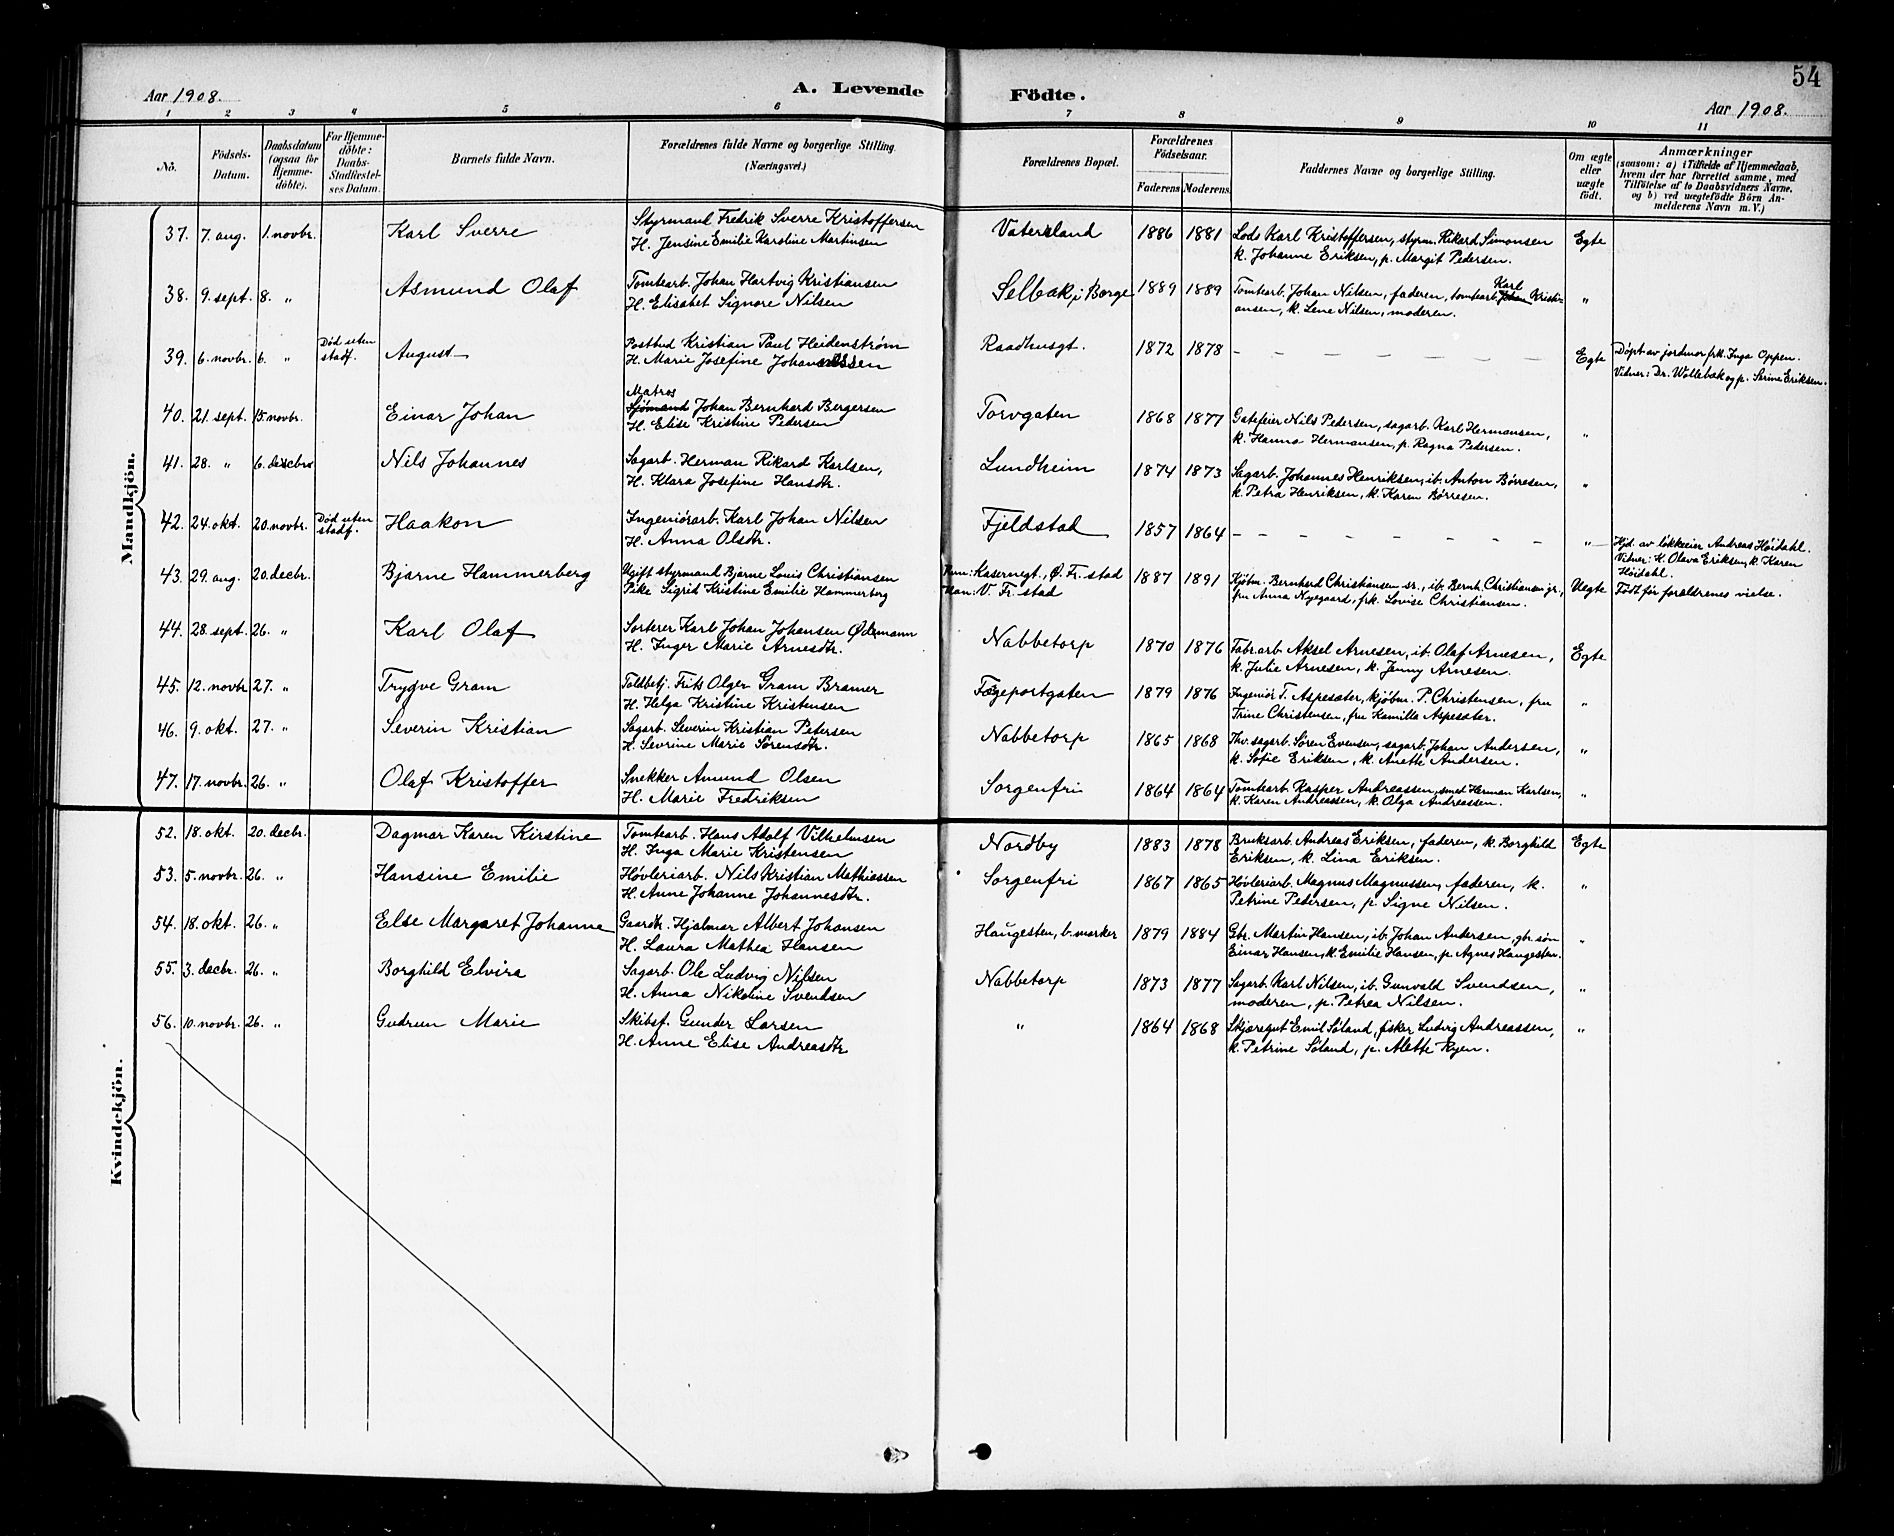 54
Aar 1908. A. Levende Födte. Aar 1908.
1 2 3 4 5 6 7 8 9 10 11
No. Födsels-Datum. Daabsdatum (ogsaa for Hjemmedöbte). For Hjemmedöbte: Daabs-Stadfæstelses Datum. Barnets fulde Navn. Forældrenes fulde Navne og borgerlige Stilling (Næringsvei.) Forældrenes Bopæl. Forældrenes Födselsaar. Faderens Moderens Faddernes Navne og borgerlige Stilling. Om ægte eller uægte födt. Anmærkninger (saasom: a) i Tilfælde af Hjemmedaab, hvem der har forrettet samme, med Tilföielse af to Daabsvidners Navne, og b) ved uægtefödte Börn Anmelderens Navn m. V.)
Mandkjön.
37. 7. aug. 1. novbr. Karl Sverre Styrmand Fredrik Sverre Kristoffersen Vaterland 1886 1881 Lods Karl Kristoffersen, styrm. Rikard Simonsen Egte
H. Jensine Emilie Karoline Martinsen k. Johanne Eriksen, p. Margit Pedersen.
38. 9. sept. 8. „ Asmund Olaf Tomtearb. Johan Hartvig Kristiansen Selbak i Borge 1889 1889 Tomtearb. Johan Nilsen, faderen, tomtearb. Karl Kristi- „
H. Elisabet Signore Nilsen ansen, k. Lene Nilsen, moderen.
39. 6. novbr. 6. „ Död uten stadf. August Postbud Kristian Paul Heidenstrøm Raadhusgt. 1872 1878 — — — — — — Egte Døpt av jordmor frk. Inga Oppen.
H. Marie Josefine Johannessen Vidner: Dr. Wollebæk og p. Serine Eriksen.
40. 21. sept. 15. novbr. Einar Johan Matros Sjømand Johan Bernhard Bergersen Torvgaten 1868 1877 Gatefeier Nils Pedersen, sagarb. Karl Hermansen, „
H. Elise Kristine Pedersen k. Hanna Hermansen, p. Ragna Pedersen.
41. 28. „ 6. decbr. Nils Johannes Sagarb. Herman Rikard Karlsen, Lundheim 1874 1873 Sagarb. Johannes Henriksen, ib. Anton Børresen, „
H. Klara Josefine Hansdtr. k. Petra Henriksen, k. Karen Børresen.
42. 24. okt. 20. novbr. Död uten stadf. Haakon Ingeniørarb. Karl Johan Nilsen Fjeldstad 1857 1864 — — — — — — „ Hjd. av løkkeeier Andreas Høidahl.
H. Anna Olsdtr. Vidner: k. Olava Eriksen, k. Karen Høidahl.
43. 29. aug. 20. decbr. Bjarne Hammerberg Ugift styrmand Bjarne Louis Christiansen Kasernegt., Ø. Fr.stad 1887 1891 Kjøbm. Bernhard Christiansen sr., ib. Bernh. Christiansen jr., Uegte Født før forældrenes vielse.
Pike Sigrid Kristine Emilie Hammerberg V. Fr.stad fru Anna Nygaard, frk. Lovise Christiansen.
44. 28. sept. 26. „ Karl Olaf Sorterer Karl Johan Johansen Ødemann Nabbetorp 1870 1876 Fabr.arb. Aksel Arnesen, ib. Olaf Arnesen, Egte
H. Inger Marie Arnesdtr. k. Julie Arnesen, k. Jenny Arnesen.
45. 12. novbr. 27. „ Trygve Gram Toldbetj. Frits Olger Gram Bramer Færgeportgaten 1879 1876 Ingeniør T. Aspesæter, kjøbm. P. Christensen, fru „
H. Helga Kristine Kristensen Trine Christensen, fru Kamilla Aspesæter.
46. 9. okt. 27. „ Severin Kristian Sagarb. Severin Kristian Petersen Nabbetorp 1865 1868 Fhv. sagarb. Søren Evensen, sagarb. Johan Andersen, „
H. Sevrine Marie Sørensdtr. k. Sofie Eriksen, k. Anette Andersen.
47. 17. novbr. 26. „ Olaf Kristoffer Snekker Amund Olsen Sorgenfri 1864 1864 Tomtearb. Kasper Andreassen, smed Herman Karlsen, „
H. Marie Fredriksen k. Karen Andreassen, k. Olga Andreassen.
Kvindekjön.
52. 18. okt. 20. decbr. Dagmar Karen Kirstine Tomtearb. Hans Adolf Vilhelmsen Nordby 1883 1878 Bruksarb. Andreas Eriksen, faderen, k. Borghild Egte
H. Inga Marie Kristensen Eriksen, k. Lina Eriksen.
53. 5. novbr. 26. „ Hansine Emilie Høvleriarb. Nils Kristian Mathiassen Sorgenfri 1867 1865 Høvleriarb. Magnus Magnussen, faderen, k. „
H. Anne Johanne Johannesdtr. Petrine Pedersen, p. Signe Nilsen.
54. 18. okt. 26. „ Else Margaret Johanne Gaardr. Hjalmar Albert Johansen Haugesten, b. marker 1879 1884 Gbr. Martin Hansen, ib. Johan Andersen, gbr. søn „
H. Laura Mathea Hansen Einar Hansen, k. Emilie Hansen, p. Agnes Haugesten.
55. 3. decbr. 26. „ Borghild Elvira Sagarb. Ole Ludvig Nilsen Nabbetorp 1873 1877 Sagarb. Karl Nilsen, ib. Gunvald Svendsen, „
H. Anna Nikoline Svendsen moderen, p. Petrea Nilsen.
56. 10. novbr. 26. „ Gudrun Marie Skibsf. Gunder Larsen „ 1864 1868 Skjæregut Emil Søland, fisker Ludvig Andreassen, „
H. Anne Elise Andreasdtr k. Petrine Søland, p. Alette Ryen.